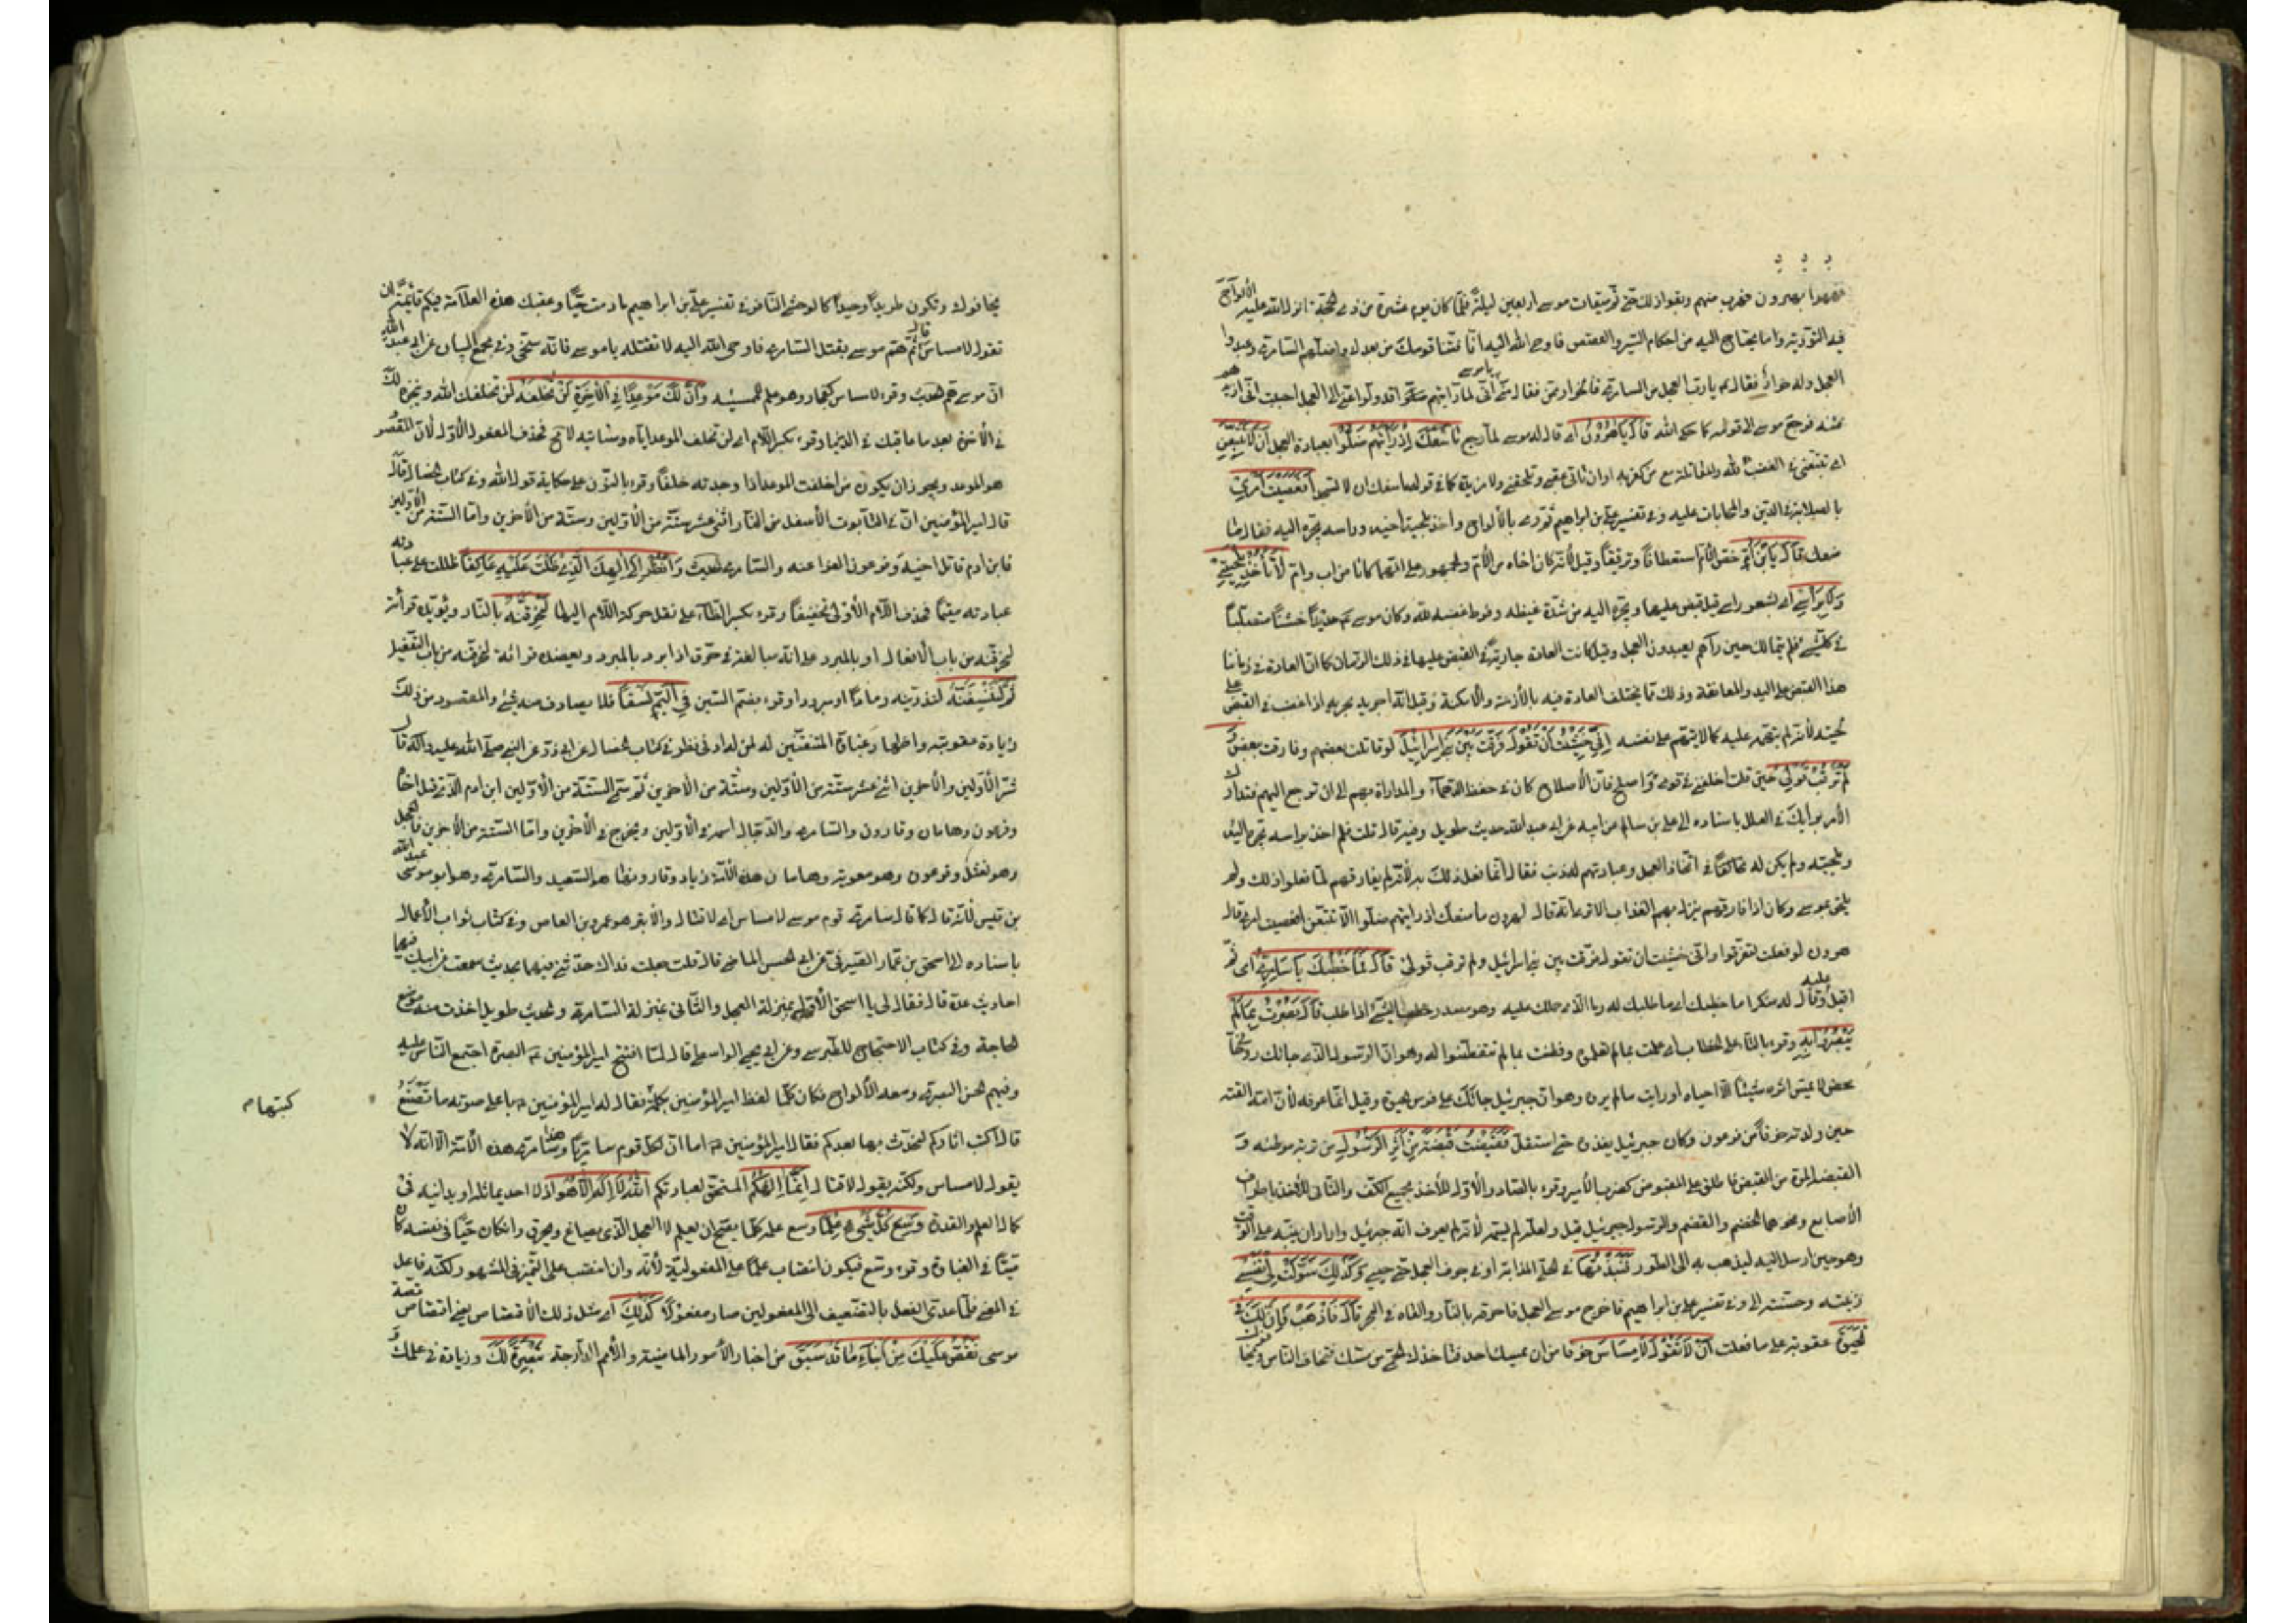 فهموا بهرون فهرب منهم وبقوا في ذلك حتى تم ميقات موسى أربعين ليلة فلما كان يوم عشرة من ذي الحجة أنزل الله عليه الألواح
فيه التورية وما يحتاج اليه من أحكام السير والقصص فأوحى الله اليه انا فتنا قومك من بعدك وأضلهم السامري وعبدوا
العجل وله خوار فقال يا رب العجل من السامري فالخوار ممن فقال مني يا موسى اني لما رأيتهم قد ولوا عني الى العجل احببت ان أزيدهم
فتنة فرجع موسى الى قومه كما حكى الله قَالَ يَا هٰرُونُ اي قال له موسى لما رجع مَا مَنَعَكَ إِذْ رَأَيْتَهُمْ ضَلُّوا بعبادة العجل أَنْ لَا تَتَّبِعَنِ
اي تتبعني في الغضب لله والمقاتلة مع من كفر به او ان تأتي عقبي وتلحقني ولا مزيدة كما في قوله ما منعك ان لا تسجد أَفَعَصَيْتَ أَمْرِي
بالصلابة في الدين والمحامات عليه وفي تفسير علي بن ابراهيم ثم رمى بالألواح وأخذ بلحية أخيه ورأسه يجره اليه فقال ما
منعك قَالَ يَا ابْنَ أُمَّ خص الأم استعطافا وترقيقا وقيل لأنه كان أخاه من الأم والجمهور على انهما كانا من اب وام لَا تَأْخُذْ بِلِحْيَتِي
وَلَا بِرَأْسِي اي بشعر رأسي قيل قبض عليهما ويجره اليه من شدة غيظه وفرط غضبه لله وكان موسى حديدا خشنا متصلبا
في كل شيء فلم يتمالك حين رآهم يعبدون العجل وقيل كانت العادة جارية في القبض عليهما في ذلك الزمان كما ان العادة في زماننا
هذا القبض على اليد والمعانقة وذلك مما يختلف العادة فيه بالأزمنة والأمكنة وقيل انه اجراه مجرى نفسه اذا غضب في القبض على
لحيته لأنه لم يتهم عليه كما لا يتهم على نفسه إِنِّي خَشِيتُ أَنْ تَقُولَ فَرَّقْتَ بَيْنَ بَنِي إِسْرَائِيلَ لو قاتلت بعضهم وفارقت بعض وَ
لَمْ تَرْقُبْ قَوْلِي حين قلت اخلفني في قومي واصلح فان الأصلاح كان في حفظ الدهماء والمداراة بهم الى ان ترجع اليهم فتدارك
الأمر برأيك في العلل باسناده الى علي بن سالم عن ابيه عن ابي عبد الله حديث طويل وفيه قال قلت فلم اخذ برأسه يجره اليه
وبلحيته ولم يكن له في اتخاذ العجل وعبادتهم له ذنب فقال انما فعل ذلك به لأنه لم يفارقهم لما فعلوا ذلك ولم
يلحق بموسى وكان اذا فارقهم ينزل بهم العذاب الا ترى انه قال لهرون ما منعك اذ رأيتهم ضلوا الا تتبعن افعصيت امري قال
هرون لو فعلت لتفرقوا واني خشيت ان تقول فرقت بين بني اسرائيل ولم ترقب قولي قَالَ فَمَا خَطْبُكَ يَا سَامِرِيُّ اي ثم
اقبل عليه وقال له منكرا ما خطبك اي ما طلبك له وما الذي حملك عليه وهو مصدر خطب الشيء اذا طلبه قَالَ بَصُرْتُ بِمَا لَمْ
يَبْصُرُوا بِهِ وقرء بالتاء على الخطاب اي علمت بما لم تعلموه وفطنت بما لم تتفطنوا له وهو ان الرسول الذي جاءك روحاني
محض لا يمس اثره شيئا الا احياه او رأيت ما لم يروه وهو ان جبرئيل جاءك على فرس الحيوة وقيل انما عرفه لأن امه القته
حين ولدته خوفا من فرعون وكان جبرئيل يغذوه حتى استقل فَقَبَضْتُ قَبْضَةً مِنْ أَثَرِ الرَّسُولِ من تربة موطئه و
القبضة المرة من القبض فاطلق على المقبوض كضرب الأمير وقرء بالصاد والأول للأخذ بجميع الكف والثاني للأخذ باطراف
الأصابع ونحوهما الخضم والقضم والرسول جبرئيل قيل ولعله لم يسمه لأنه لم يعرف انه جبرئيل او اراد ان ينبه على الوقت
وهو حين ارسل اليه ليذهب به الى الطور فَنَبَذْتُهَا في الحلي المذابة او في جوف العجل حتى حيي وَكَذٰلِكَ سَوَّلَتْ لِي نَفْسِي
زينته وحسنته الي وفي تفسير علي بن ابراهيم فاخرج موسى العجل فاحرقه بالنار والقاه في البحر قَالَ فَاذْهَبْ فَإِنَّ لَكَ فِي
الْحَيٰوةِ عقوبة على ما فعلت أَنْ تَقُولَ لَا مِسَاسَ خوفا من ان يمسك احد فتأخذك الحمى من مسك فتحامى الناس
يحاموك وتكون طريدا وحيدا كالوحشي النافر وفي تفسير علي بن ابراهيم ما دمت حيا وعقبك هذه العلامة فيكم قائمة ان
تقول لا مساس قال ثم هم موسى بقتل السامري فاوحى الله اليه لا تقتله يا موسى فانه سخي وفي مجمع البيان عن ابي عبد الله
ان موسى هم بقتله وقرء لا مساس كفجار وهو علم للمسة وَإِنَّ لَكَ مَوْعِدًا في الآخرة لَنْ تُخْلَفَهُ لن يخلفك الله وينجزه لك
في الآخرة بعد ما عاقبك في الدنيا وقرء بكسر اللام اي لن تخلف الموعد اياه وستأتيه لا محالة فحذف المفعول الأول لأن المقصود
هو الموعد ويجوز ان يكون من اخلفت الموعد اذا وجدته خلفا وقرء بالنون على حكاية قول الله وفي كتاب الخصال قال
قال امير المؤمنين ان في التابوت الأسفل من النار اثني عشر ستة من الأولين وستة من الآخرين واما الستة من الأولين
فابن ادم قاتل اخيه وفرعون الفراعنة والسامري الحديث وَانْظُرْ إِلَى إِلٰهِكَ الَّذِي ظَلْتَ عَلَيْهِ عَاكِفًا ظللت على
عبادته مقيما فحذف اللام الأولى تخفيفا وقرء بكسر الظاء على نقل حركة اللام اليها لَنُحَرِّقَنَّهُ بالنار ويؤيده قرأة
لنحرقنه من باب الأفعال او بالمبرد على انه مبالغة في حرق اذا برد بالمبرد ويعضده قرائة لنحرقنه من باب التفعيل
ثُمَّ لَنَنْسِفَنَّهُ لنذرينه رمادا او مبرودا وقرء بضم السين فِي الْيَمِّ نَسْفًا فلا يصادف منه شيء والمقصود من ذلك
زيادة عقوبته واظهار غباوة المفتتنين به لمن له ادنى نظر وفي كتاب الخصال عن ابي ذر عن النبي صلى الله عليه وآله قال
شر الأولين والآخرين اثنى عشر ستة من الأولين وستة من الآخرين ثم سمى الستة من الأولين ابن ادم الذي قتل اخاه
وفرعون وهامان وقارون والسامري والدجال اسمه في الأولين ويخرج في الآخرين واما الستة من الآخرين فالعجل
وهو نعثل وفرعون وهو معوية وهامان هذه الأمة زياد وقارونها هو السعيد والسامري وهو ابو موسى عبد الله
بن قيس لأنه قال كما قال سامري قوم موسى لا مساس اي لا قتال والأبتر هو عمرو بن العاص وفي كتاب ثواب الأعمال
باسناده الى اسحق بن عمار الصيرفي عن ابي الحسن الماضي قال قلت جعلت فداك حدثني فيهما بحديث سمعت عن ابيك فيهما
احاديث عدة قال فقال لي يا اسحق الأول بمنزلة العجل والثاني بمنزلة السامري والحديث طويل اخذت منه موضع
الحاجة وفي كتاب الاحتجاج للطبرسي وعن ابي يحيى الواسطي قال لما افتتح امير المؤمنين البصرة اجتمع الناس عليه
وفيهم الحسن البصري ومعه الألواح فكان كلما لفظ امير المؤمنين بكلمة فقال له امير المؤمنين باعلى صوته ما تصنع
كتبها
قال اكتب اثاركم لنحدث بها بعدكم فقال امير المؤمنين اما ان لكل قوم سامريا وهذا سامري هذه الأمة الا انه لا
يقول لا مساس ولكنه يقول لا قتال إِنَّمَا إِلٰهُكُمُ المستحق لعبادتكم اللهُ الَّذِي لَا إِلٰهَ إِلَّا هُوَ اذ لا احد يماثله او يدانيه في
كمال العلم والقدرة وَسِعَ كُلَّ شَيْءٍ عِلْمًا وسع علمه كل ما يصح ان يعلم لا العجل الذي يصاغ ويحرق وان كان حيا في نفسه كان
مثلا في الغباوة وقرء وسع فيكون انتصاب علما على المفعولية لأنه وان انتصب على التميز في المشهور لكنه فاعل
في المعنى فلما عدي الفعل بالتضعيف الى المفعولين صار مفعولا كَذٰلِكَ اي مثل ذلك الاقتصاص يعني اقتصاص قصة
موسى نَقُصُّ عَلَيْكَ مِنْ أَنْبَاءِ مَا قَدْ سَبَقَ من اخبار الأمور الماضية والأمم الدارجة تبصرة لك وزيادة في علمك و